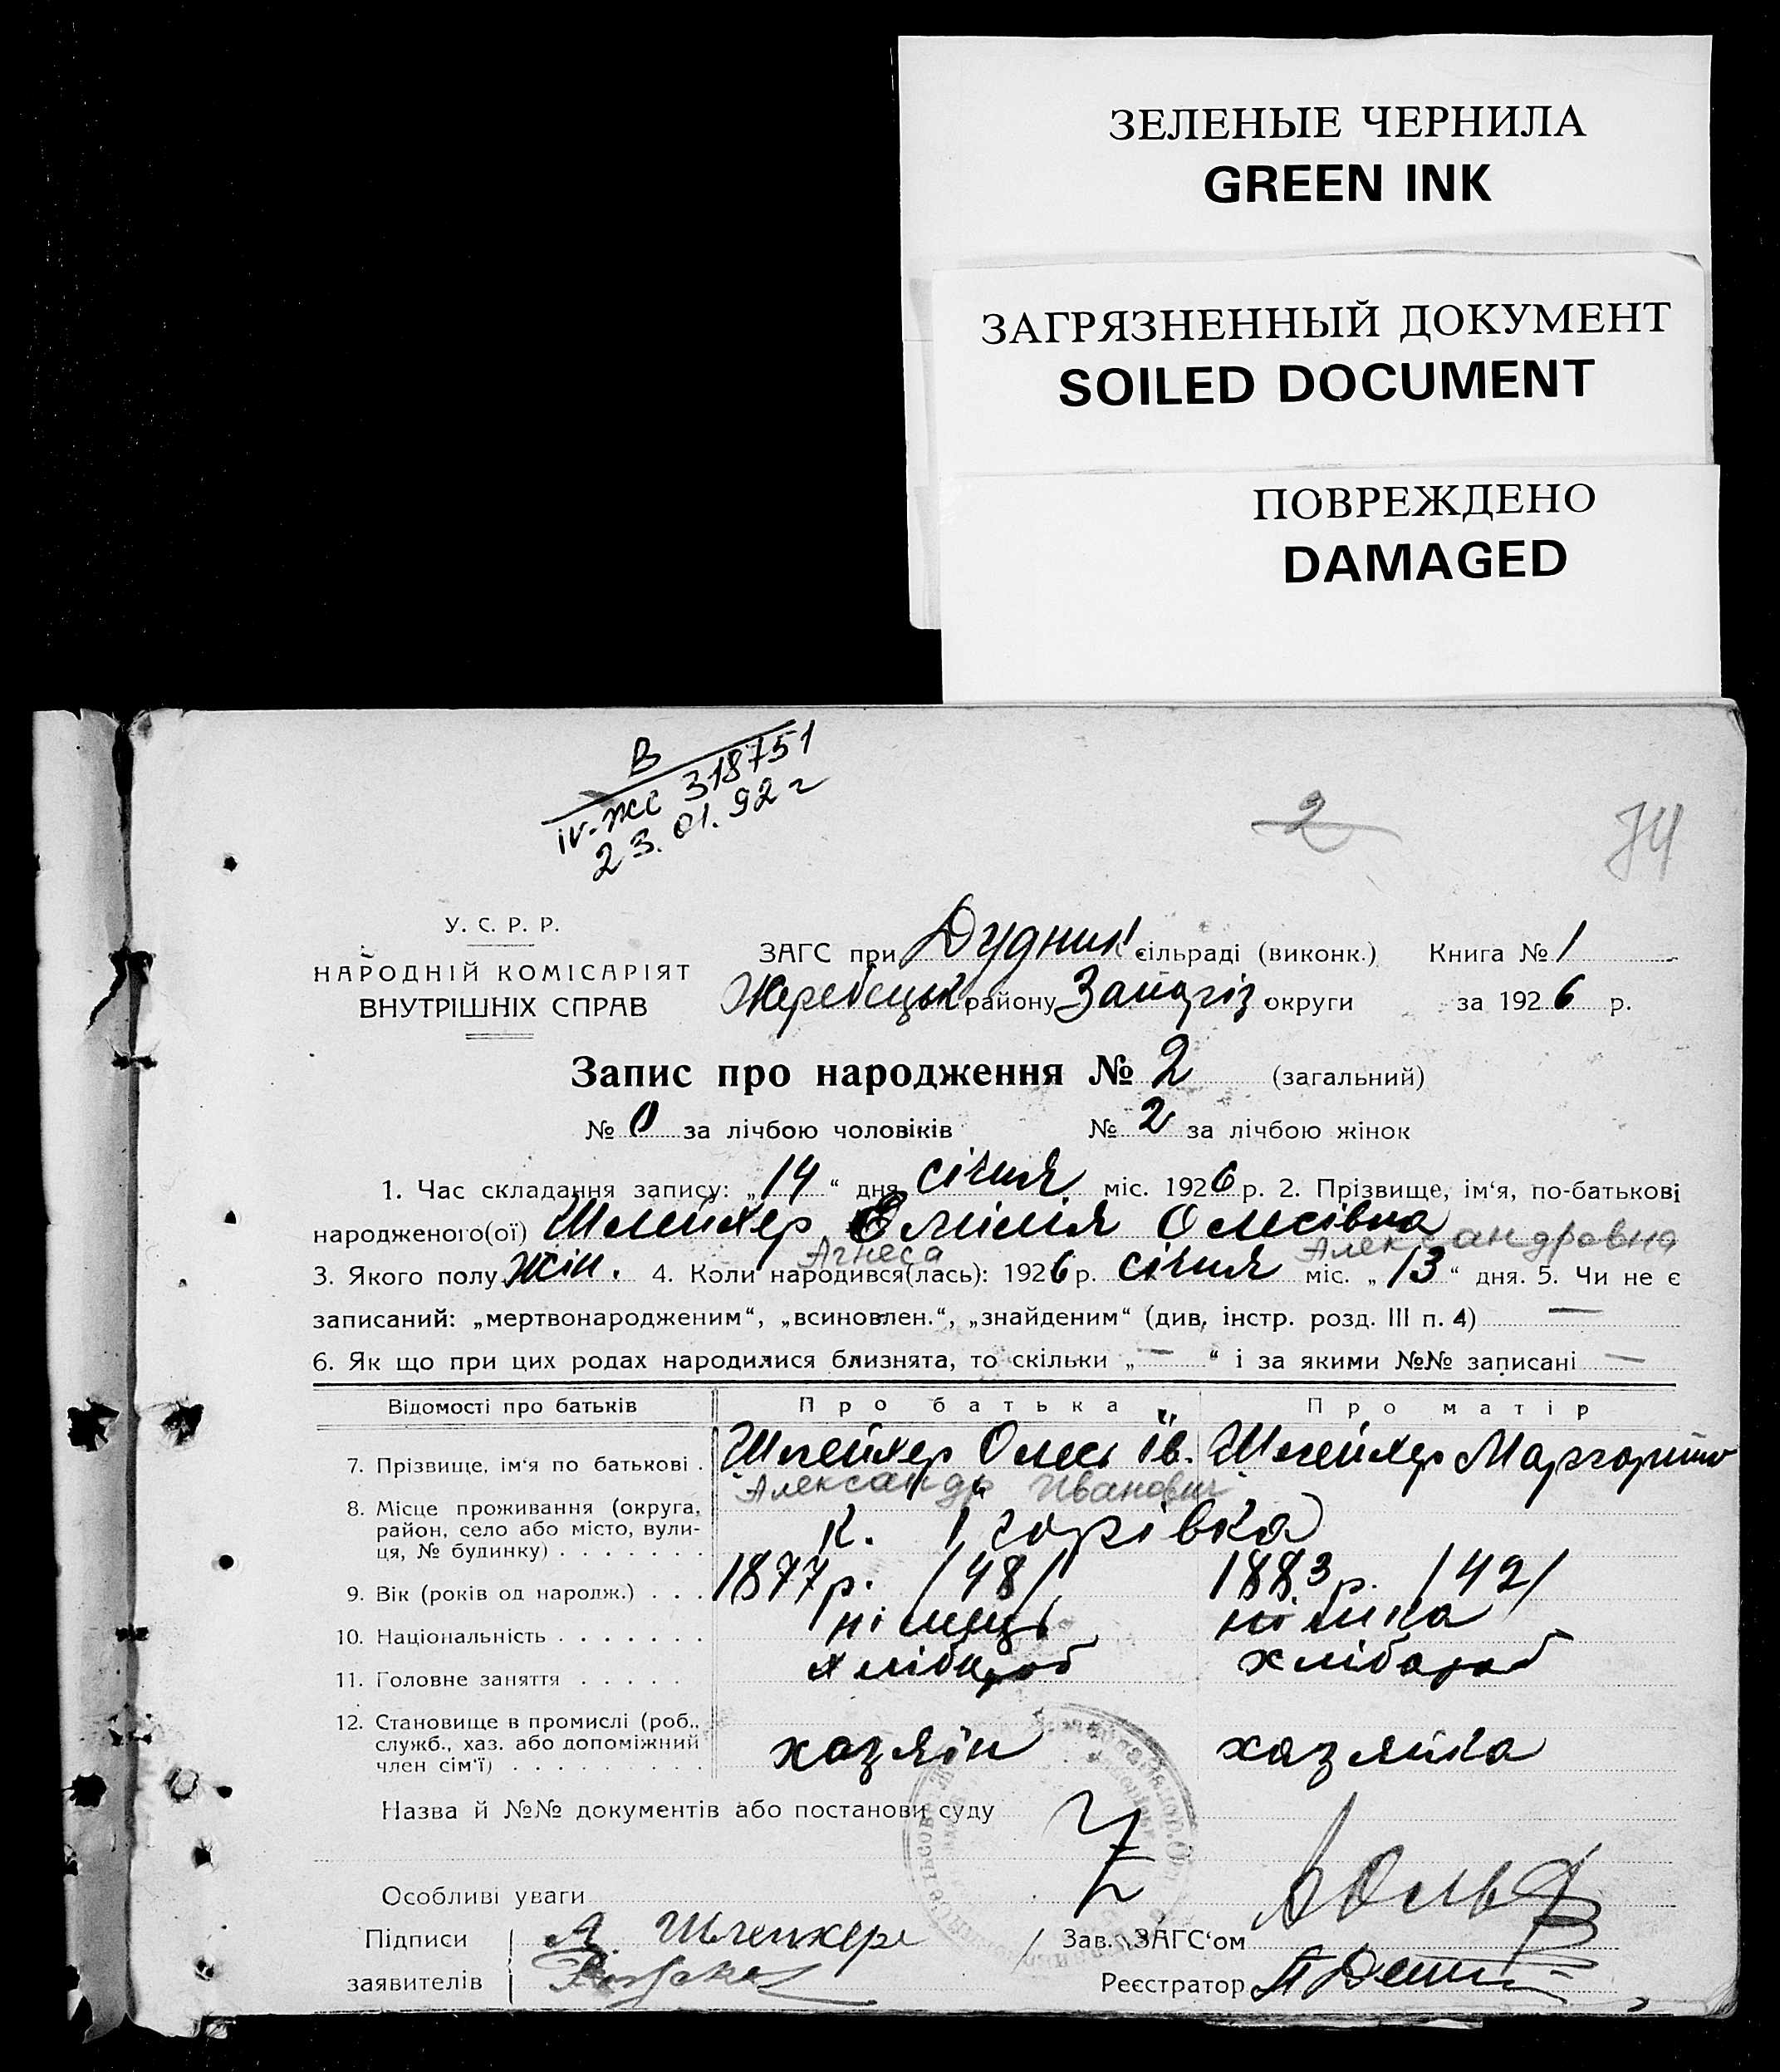 ЗЕЛЕНЫЕ ЧЕРНИЛА
GREEN INK
ЗАГРЯЗНЕННЫЙ ДОКУМЕНТ
SOILED DOCUMENT
ПОВРЕЖДЕНО
DAMAGED
В
IV-ЖС 318751
23.01.92 г
2
74
У. С. Р. Р.
НАРОДНІЙ КОМІСАРІЯТ
ВНУТРІШНІХ СПРАВ
ЗАГС при Дудник сільраді (виконк.) Книга № 1
Жеребецьк району Запоріз. округи за 1926 р.
Запис про народження № 2 (загальний)
№ 0 за лічбою чоловіків № 2 за лічбою жінок
1. Час складання запису: „14“ дня січня міс. 1926 р. 2. Прізвище, ім‘я, по-батькові
народженого(ої) Шлейхер Емілія Олесівна
Агнеса Александровна
3. Якого полу жін. 4. Коли народився(лась): 1926 р. січня міс. „13“ дня. 5. Чи не є
записаний: „мертвонародженим“, „всиновлен.“, „знайденим“ (див. інстр. розд. III п. 4) —
6. Як що при цих родах народилися близнята, то скільки „—“ і за якими №№ записані —
Відомості про батьків Про батька Про матір
7. Прізвище, ім‘я по батькові . Шлейхер Олесь Ів. Шлейхер Маргарита
Александр Иванович
8. Місце проживання (округа,
район, село або місто, вули-
ця, № будинку) . . . . . . . к. Ігорівка
9. Вік (років од народж.) . . . 1877 р. /48/ 1883 р. /42/
10. Національність . . . . . . . німець німка
11. Головне заняття . . . . . хлібороб хлібороб
12. Становище в промислі (роб.,
служб., хаз. або допоміжний
член сім‘ї) . . . . . . . . . хазяїн хазяйка
Назва й №№ документів або постанови суду
Особливі уваги
Підписи А. Шлейхер Зав. ЗАГС‘ом
заявителів Реєстратор